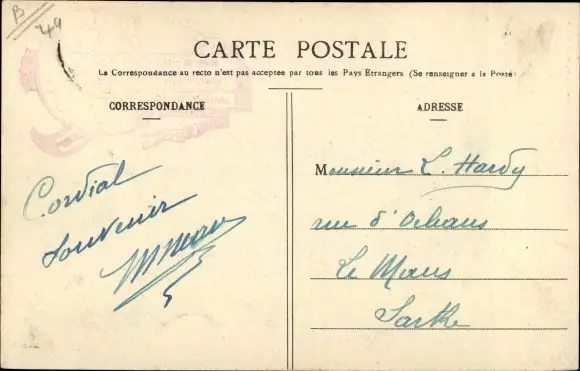 B
49
CARTE POSTALE
La Correspondance au recto n'est pas acceptée par tous les Pays Etrangers (Se renseigner à la Poste)
CORRESPONDANCE
Cordial
Souvenir
ADRESSE
Monsieur L. Hardy
rue d'Orléans
Le Mans
Sarthe